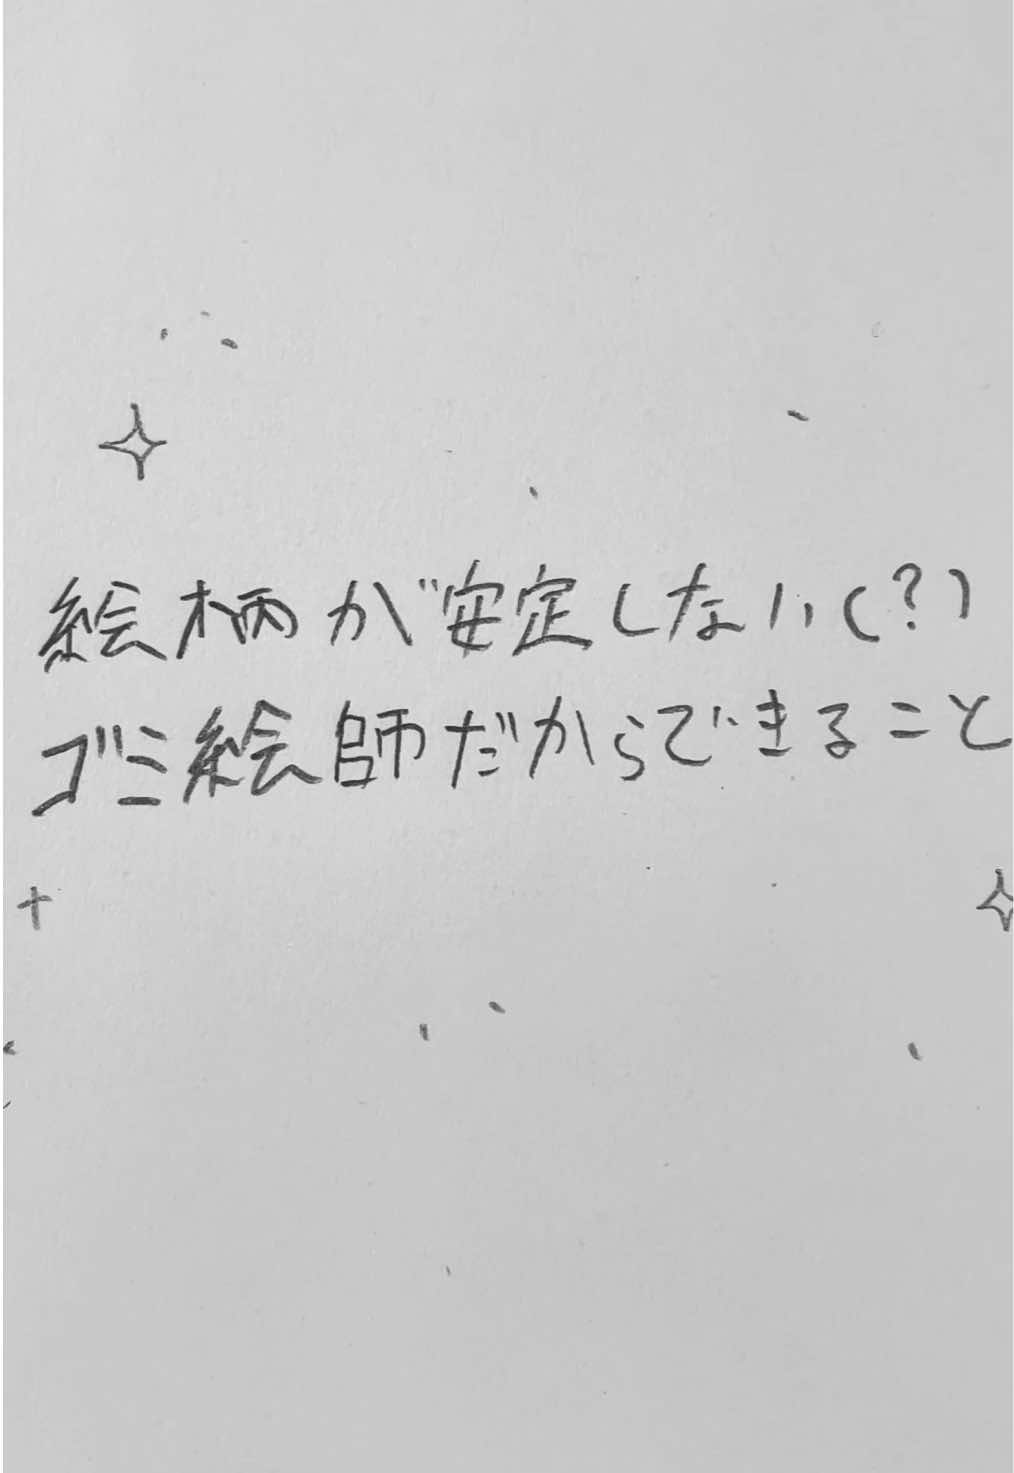 絵柄が安定しない(?)
ゴミ絵師だからできること